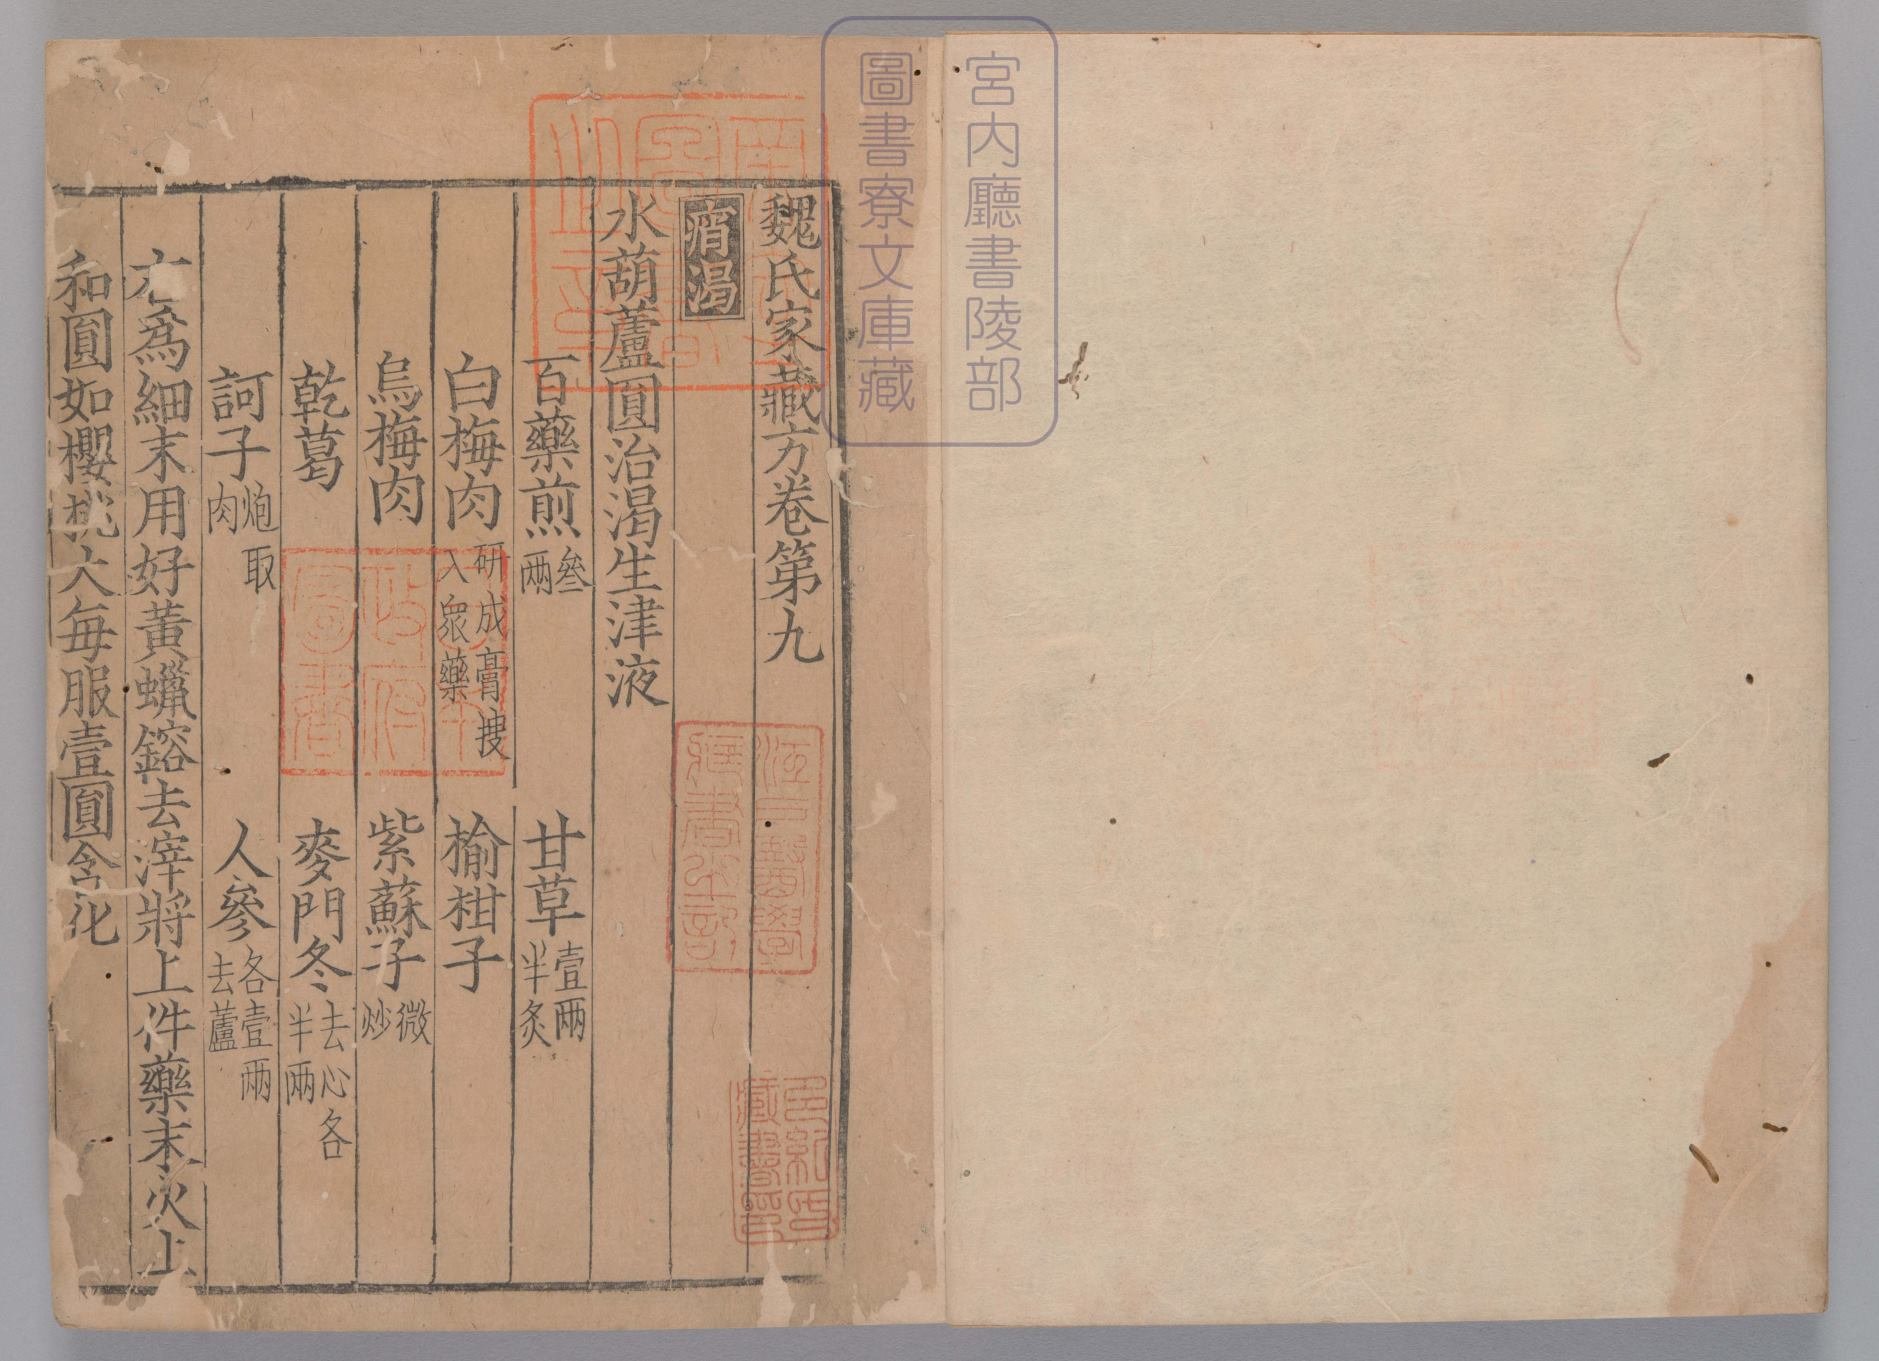 宮内廳書陵部
圖書寮文庫藏
魏氏家藏方卷第九
痟渴
水葫蘆圓治渴生津液
百藥煎叁兩 甘草壹兩半炙
白梅肉研成膏搜入衆藥 榆柑子
烏梅肉 紫蘇子微炒
乾葛 麥門冬去心各半兩
訶子炮取肉 人參各壹兩去蘆
右爲細末用好黃蠟鎔去滓將上件藥末火上
和圓如櫻桃大每服壹圓含化
江戸醫學
藏書之記
多紀氏
藏書印